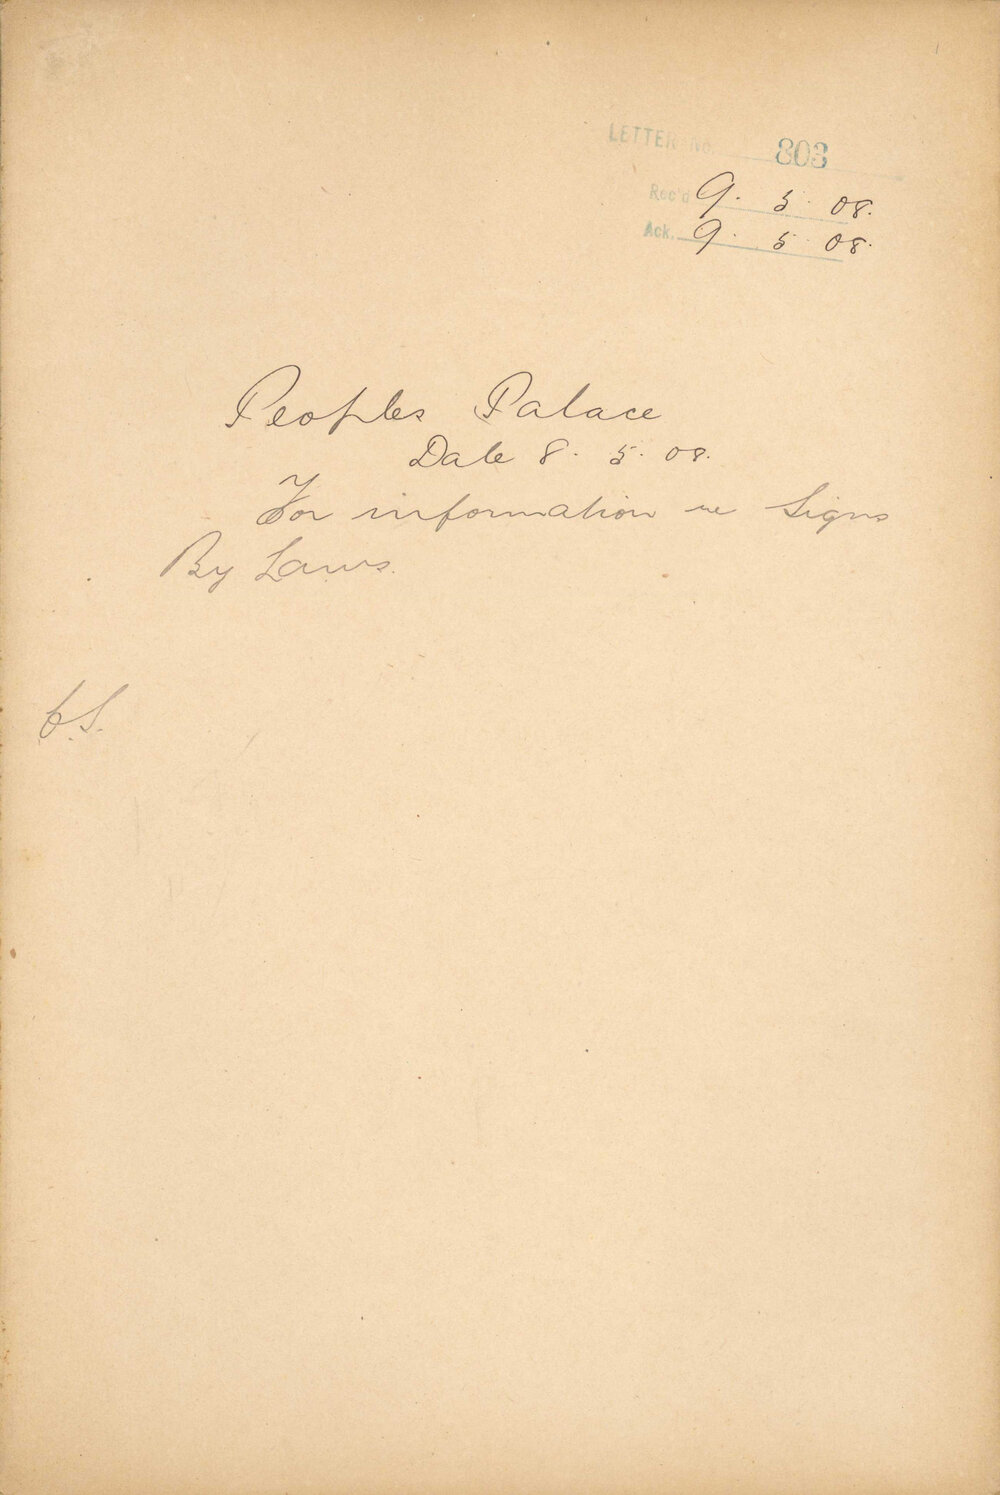 LETTER No. 803
Rec'd 9. 5. 08.
Ack. 9. 5. 08.
Peoples Palace
Date 8. 5. 08.
For information re Signs
By Laws.
C.S.